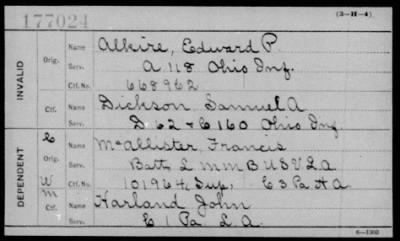 177024
(3-H-4)
INVALID
Orig.
Name Alkire, Edward P.
Serv. A 118 Ohio Inf.
Ctf. No. 668962
Ctf.
Name Dickson, Samuel A
Serv. D 62 & C 160 Ohio Inf
DEPENDENT
Orig.
Name McAllister, Francis
Serv. Batt L M M B U S V L A
Ctf. No. 101964, Sup, C 3 Pa H A
W
m
Ctf.
Name Harland John
Serv. C 1 Pa L A